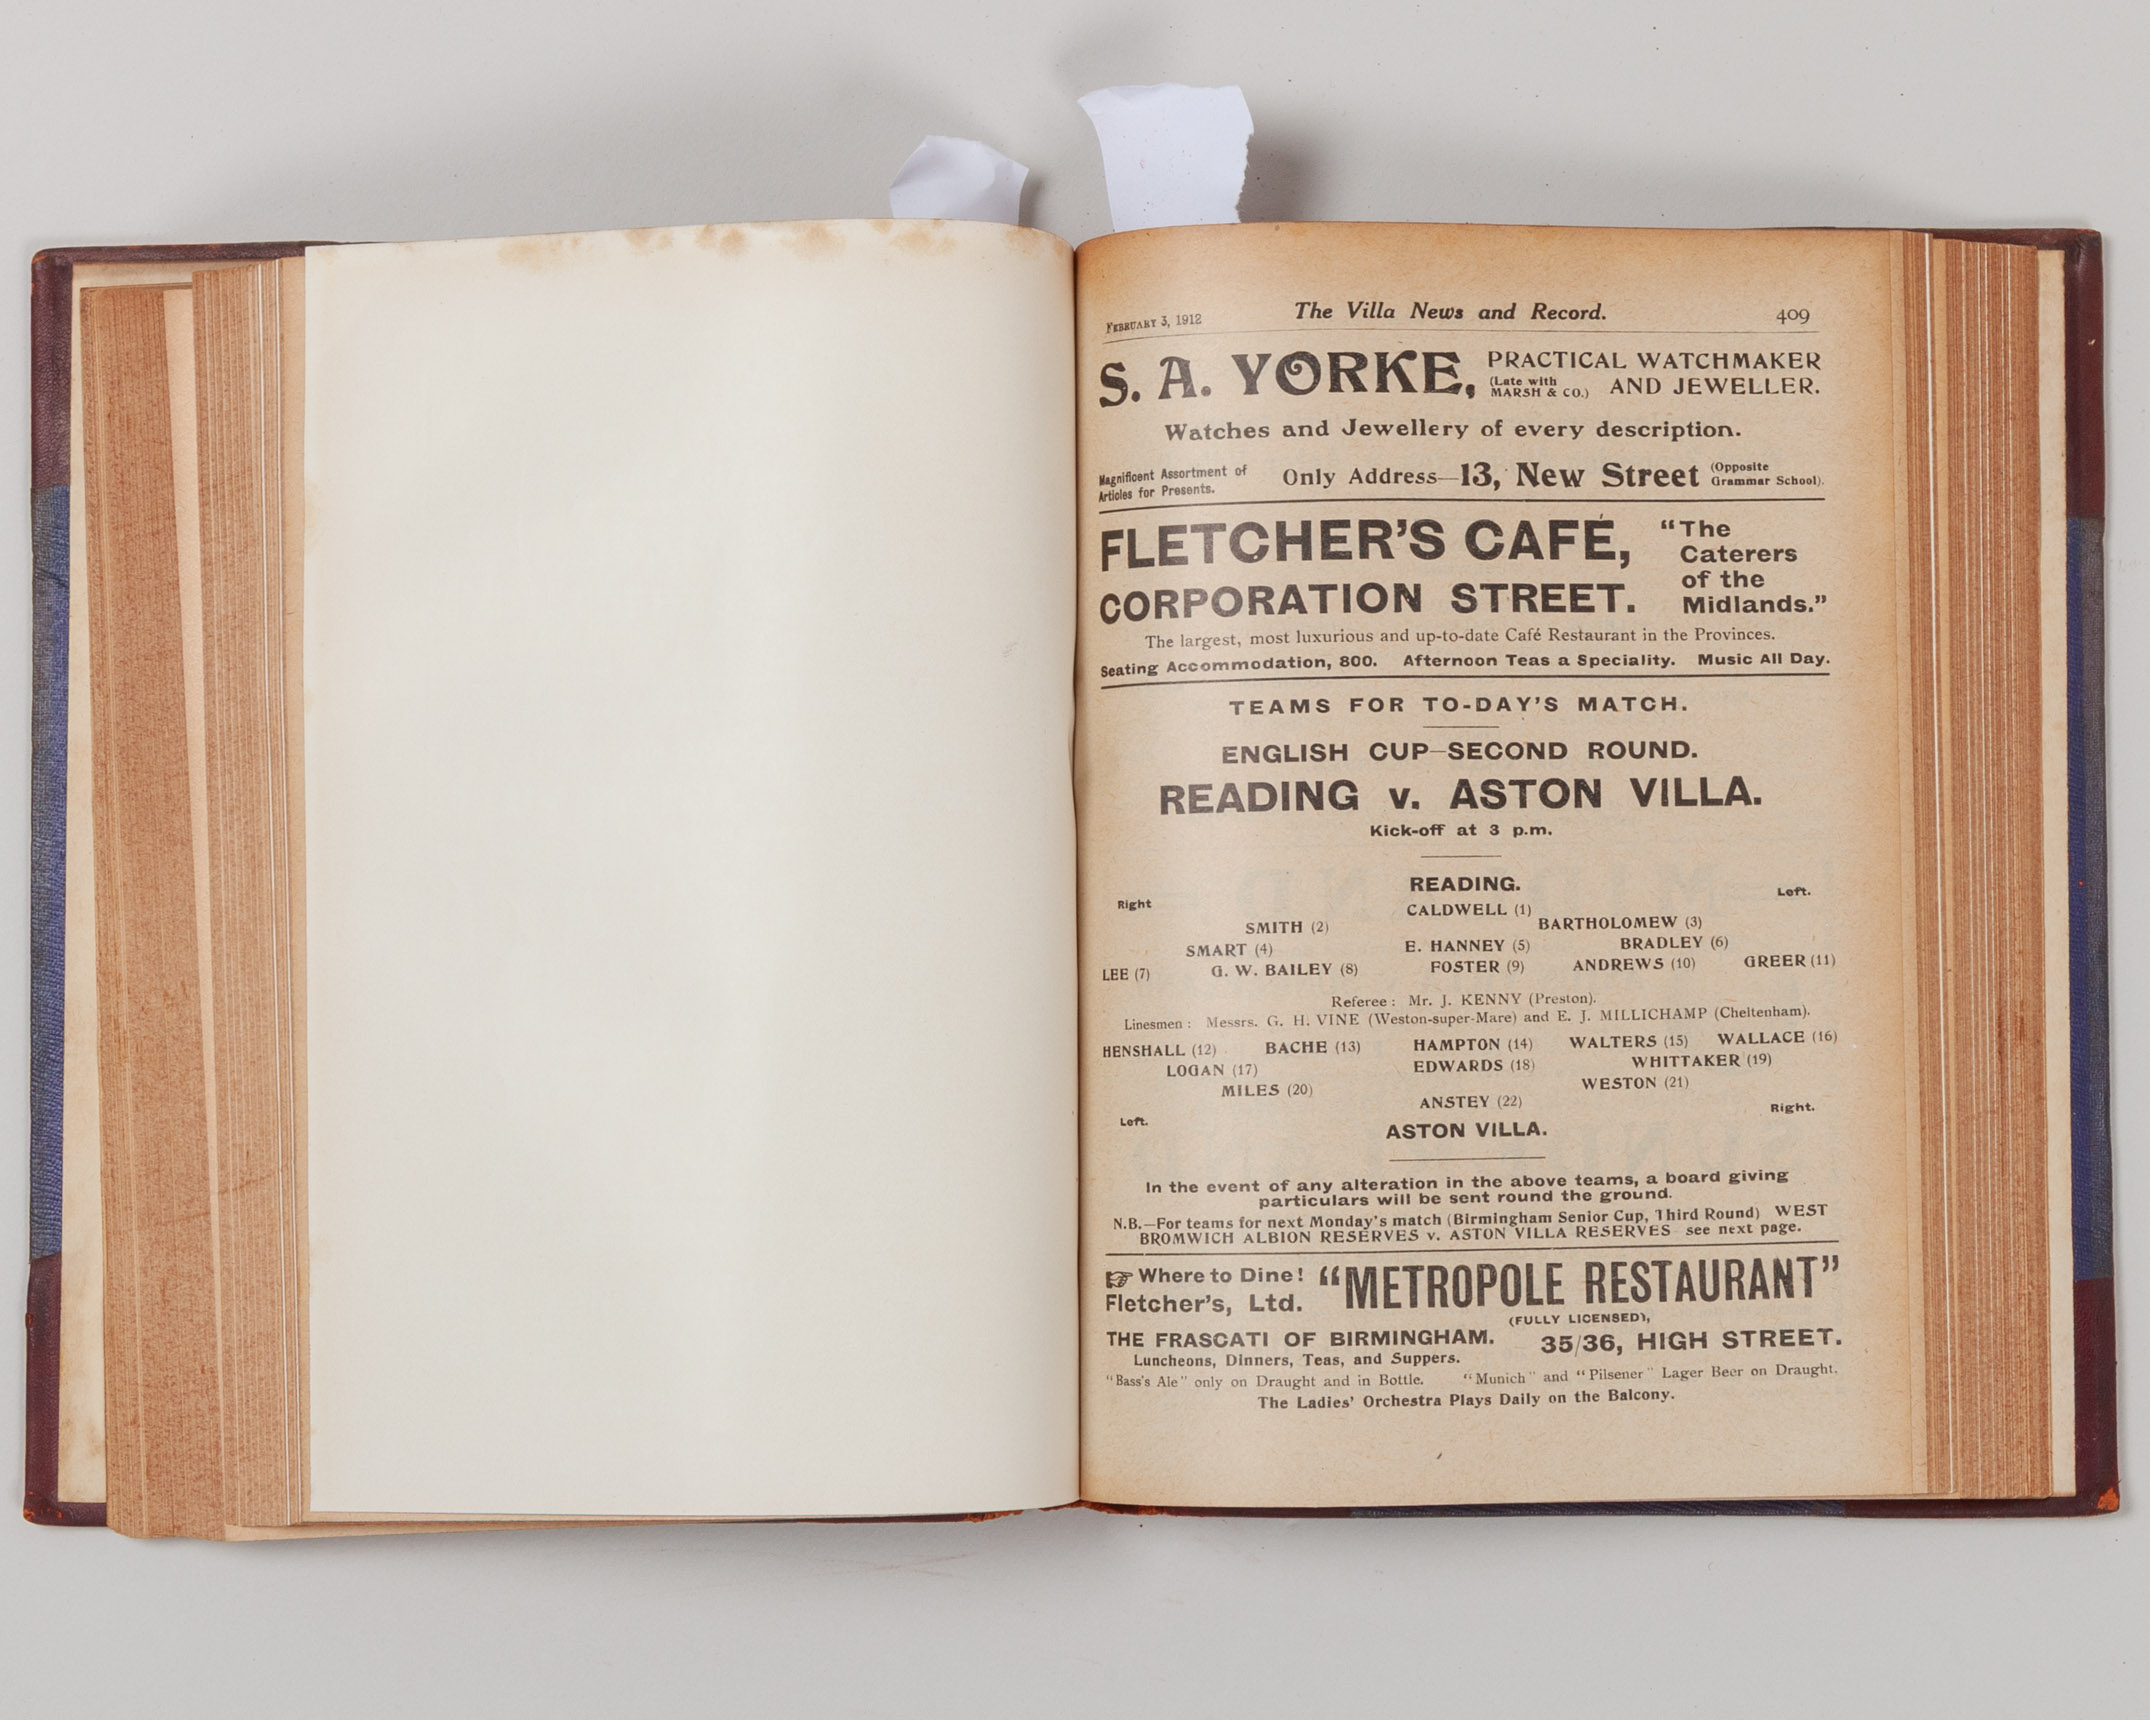 February 3, 1912 The Villa News and Record. 409
S. A. YORKE, PRACTICAL WATCHMAKER
(Late with MARSH & CO.) AND JEWELLER.
Watches and Jewellery of every description.
Magnificent Assortment of Articles for Presents. Only Address—13, New Street (Opposite Grammar School).
FLETCHER'S CAFÉ,
CORPORATION STREET.
"The
Caterers
of the
Midlands."
The largest, most luxurious and up-to-date Café Restaurant in the Provinces.
Seating Accommodation, 800. Afternoon Teas a Speciality. Music All Day.
TEAMS FOR TO-DAY'S MATCH.
ENGLISH CUP—SECOND ROUND.
READING v. ASTON VILLA.
Kick-off at 3 p.m.
READING.
Right Left.
CALDWELL (1)
SMITH (2) BARTHOLOMEW (3)
SMART (4) E. HANNEY (5) BRADLEY (6)
LEE (7) G. W. BAILEY (8) FOSTER (9) ANDREWS (10) GREER (11)
Referee : Mr. J. KENNY (Preston).
Linesmen : Messrs. G. H. VINE (Weston-super-Mare) and E. J. MILLICHAMP (Cheltenham).
HENSHALL (12) BACHE (13) HAMPTON (14) WALTERS (15) WALLACE (16)
LOGAN (17) EDWARDS (18) WHITTAKER (19)
MILES (20) WESTON (21)
ANSTEY (22)
Left. Right.
ASTON VILLA.
In the event of any alteration in the above teams, a board giving
particulars will be sent round the ground.
N.B.—For teams for next Monday's match (Birmingham Senior Cup, Third Round) WEST
BROMWICH ALBION RESERVES v. ASTON VILLA RESERVES see next page.
☞ Where to Dine! "METROPOLE RESTAURANT"
Fletcher's, Ltd.
(FULLY LICENSED),
THE FRASCATI OF BIRMINGHAM. 35/36, HIGH STREET.
Luncheons, Dinners, Teas, and Suppers.
"Bass's Ale" only on Draught and in Bottle. "Munich" and "Pilsener" Lager Beer on Draught.
The Ladies' Orchestra Plays Daily on the Balcony.